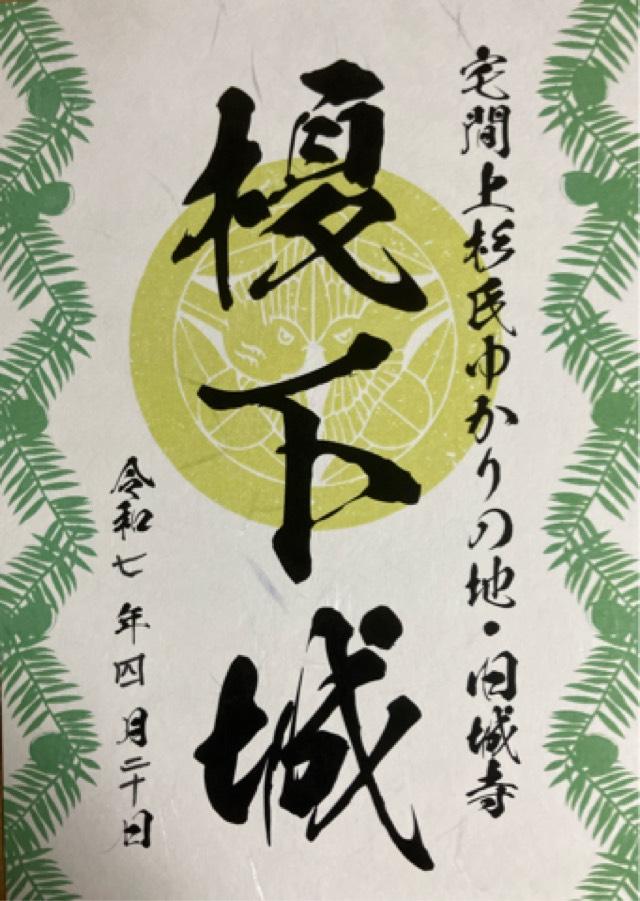 宅間上杉氏ゆかりの地・旧城寺
榎下城
令和七年四月二十日